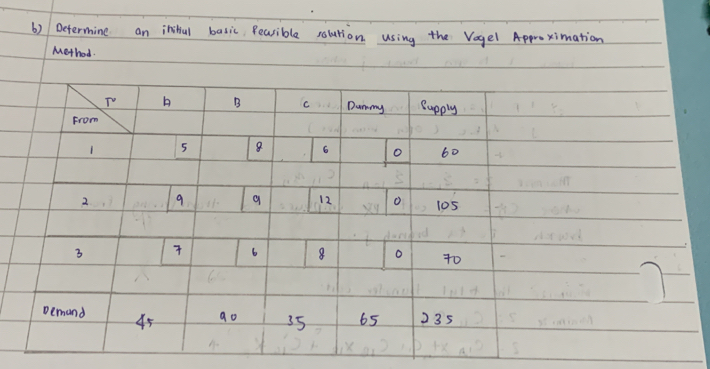 b) Determine an initial basic feasible solution using the Vogel Approximation
Method.
To A B C Dummy Supply
From
1 5 8 6 0 60
2 9 9 12 0 105
3 7 6 8 0 70
Demand 45 90 35 65 235